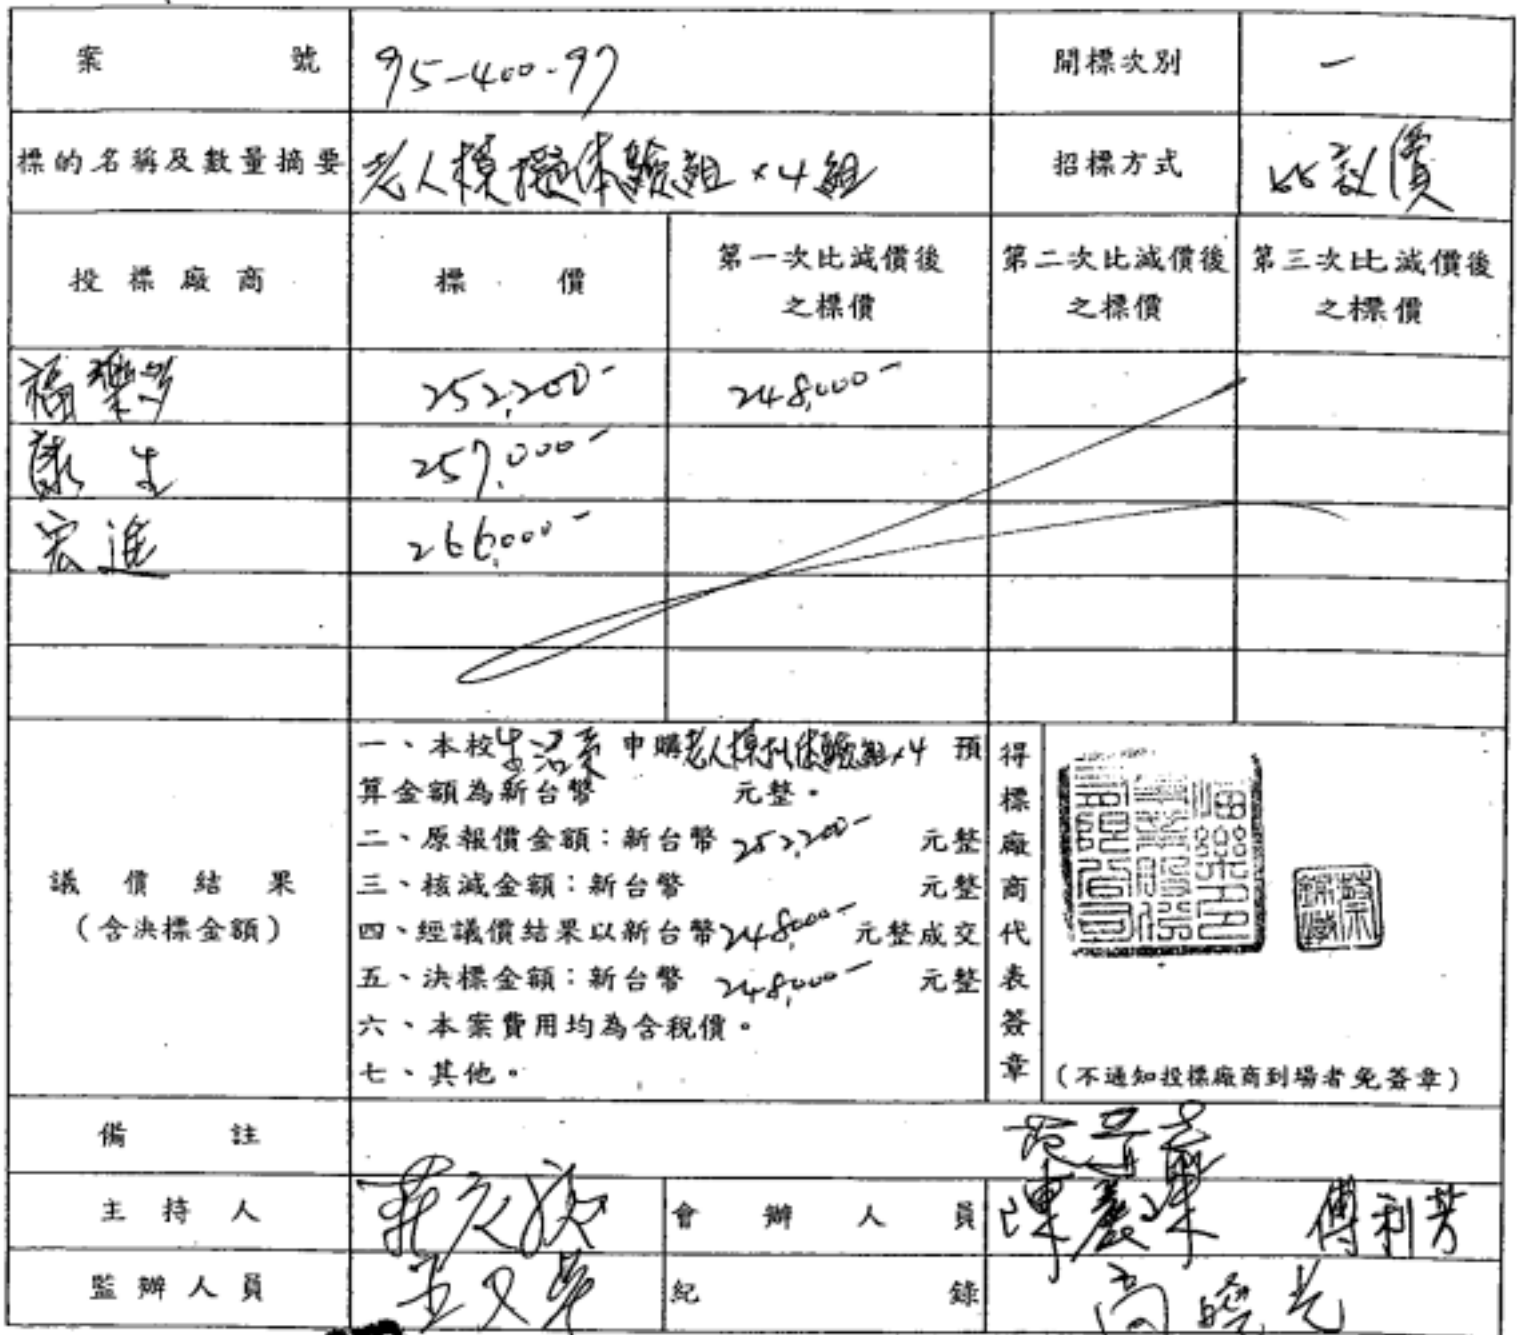 案號 95-400-97 開標次別 一
標的名稱及數量摘要 老人模擬体驗組×4組 招標方式 比議價
投標廠商 標價 第一次比減價後之標價 第二次比減價後之標價 第三次比減價後之標價
福樂多 252,200- 248,000-
康生 257,000-
宏進 266,000-
議價結果
(含決標金額)
一、本校生活系申購老人模擬体驗組×4 預
算金額為新台幣 元整。
二、原報價金額：新台幣 252,200- 元整
三、核減金額：新台幣 元整
四、經議價結果以新台幣 248,000- 元整成交
五、決標金額：新台幣 248,000- 元整
六、本案費用均為含稅價。
七、其他。
得標廠商代表簽章
(不通知投標廠商到場者免簽章)
備註
主持人 會辦人員 陳麗珠 傅利芳
監辦人員 王又 紀錄 高曉光